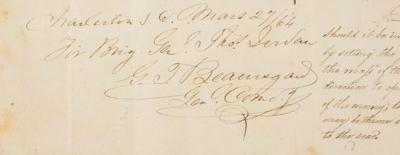 Charleston S. C. Mars 27/64
For Brig. Gen. Thos. Jordan
G. T. Beauregard
Gen. Comg
should it be
by setting the
the mass of the
direction to
of the enemy, to
way to throw
to the rear.